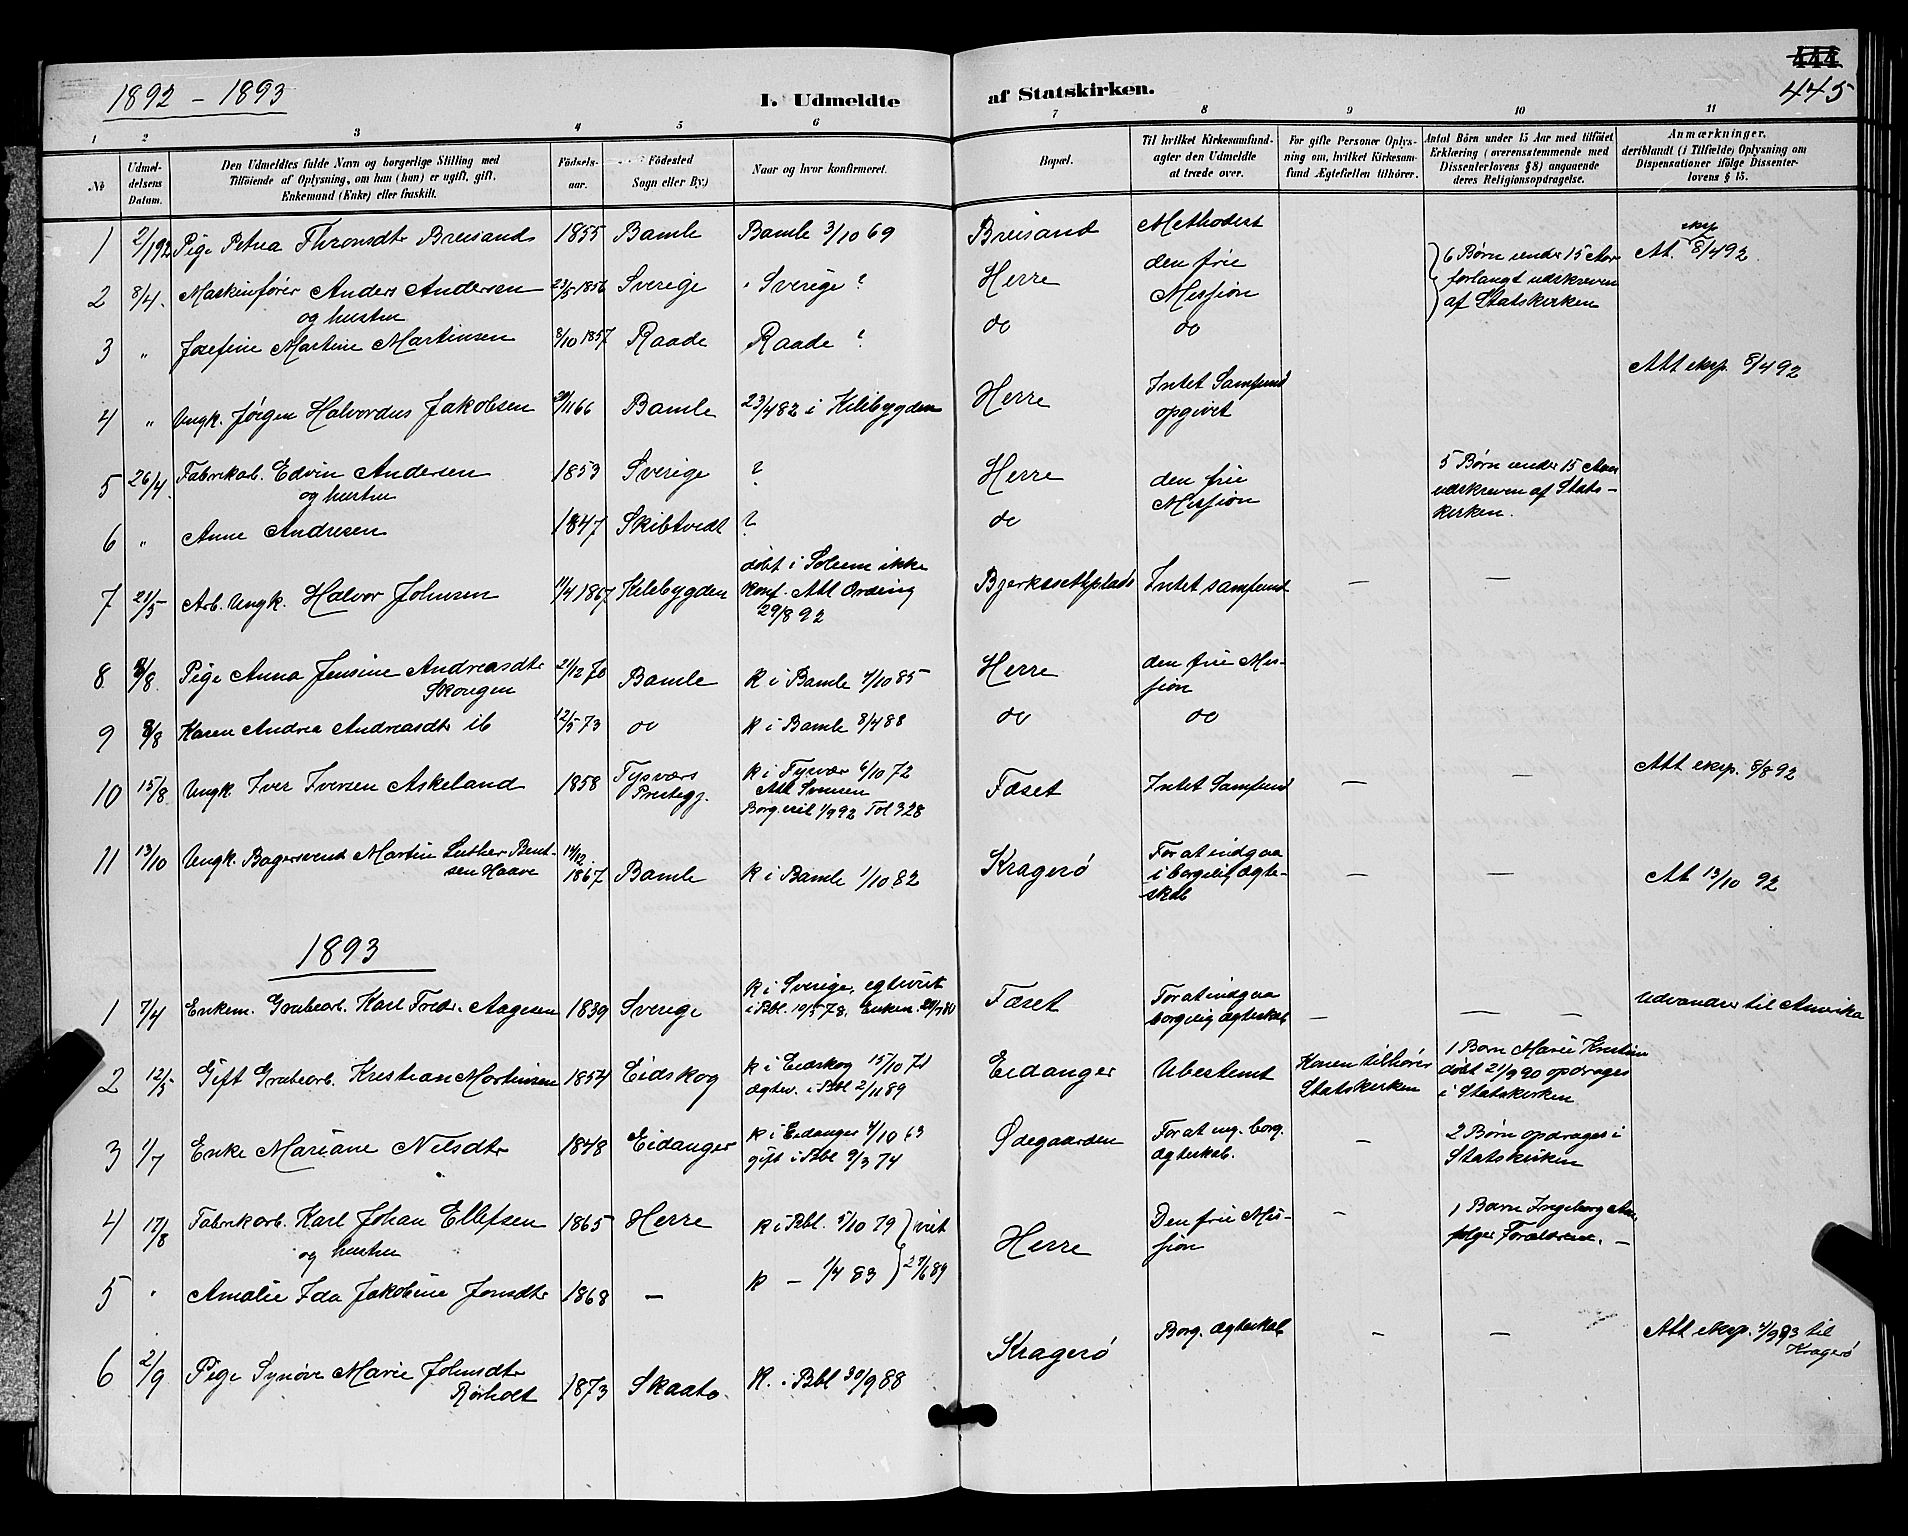 1892 - 1893
I. Udmeldte af Statskirken.
444
445
1 2 3 4 5 6 7 8 9 10 11
№ | Udmeldelsens Datum. | Den Udmeldtes fulde Navn og borgerlige Stilling med Tilføiende af Oplysning, om han (hun) er ugift, gift, Enkemand (Enke) eller fraskilt. | Fødselsaar. | Fødested Sogn eller By.) | Naar og hvor konfirmeret. | Bopæl. | Til hvilket Kirkesamfund agter den Udmeldte at træde over. | For gifte Personer Oplysning om, hvilket Kirkesamfund Ægtefællen tilhører. | Antal Børn under 15 Aar med tilføiet Erklæring (overensstemmende med Dissenterlovens § 8) angaaende deres Religionsopdragelse. | Anmærkninger, deriblandt (i Tilfælde) Oplysning om Dispensationer ifølge Dissenterlovens § 15.
1 | 2/1 92 | Pige Petrea Thronsdtr Breisand | 1855 | Bamle | Bamle 3/10 69 | Breisand | Methodist | At. eksp 8/4 92
2 | 8/4. | Maskinfører Anders Andersen og hustru | 23/5 1856 | Sverige | Sverige ? | Herre | den frie Mission | 6 Børn under 15 Aar forlangt udskreven af Statskirken
3 | " | Josefine Martine Martinsen | 8/10 1857 | Raade | Raade ? | do | do
4 | " | Ungk. Jørgen Halvordus Jakobsen | 29/11 66 | Bamle | 23/4 82 i Kilebygden | Herre | Intet Samfund opgivet | Att eksp. 8/4 92
5 | 26/4. | Fabrikarb. Edvin Andersen og hustru | 1853 | Sverige | ? | Herre | den frie Mission | 5 Børn under 15 Aar udskreven af Statskirken.
6 | " | Anne Andresen | 1847 | Skibtvedt | ? | do
7 | 21/5 | Arb. Ungk. Halvor Johnsen | 11/4 1867 | Kilebygden | døbt i Solum ikke Konf. Att Ording 29/8 92 | Bjerksætplads | Intet samfund | — | —
8 | 8/8. | Pige Anna Jensine Andreasdtr Skougen | 21/12 70 | Bamle | k i Bamle 4/10 85 | Herre | den frie Mission
9 | 8/8 | Karen Andrea Andreasdtr ib | 12/5 73 | do | k i Bamle 8/4 88 | do | do
10 | 15/8 | Ungk. Iver Iversen Askeland | 1858 | Tysværs Prestegj. | k i Tysvær 6/10 72 Att Borg. vil 1/9 92 Tol 328 | Fæset | Intet Samfund | — | — | Att eksp. 8/8 92
11 | 13/10 | Ungk. Bagersvend Martin Luther Bentsen Haave | 14/12. 1867 | Bamle | k i Bamle 1/10 82 | Kragerø | For at indgaa i borgelig Ægteskab | — | — | At 13/10 92
1893
1 | 7/4 | Enkem. Grubearb. Karl Fredr. Aagesen | 1839 | Sverige | k i Sverige, egteviet i Bbl. 10/5 78. Enkem. | Fæset | For at indgaa borgelig Ægteskab | — | — | Udvandrer til Amerika
2 | 12/5 | Gift Grubearb. Kristian Mortensen | 1857 | Eidskog | k i Eidskog 15/10 71 Ægtev. i Bbl 2/11 89 | Eidanger | Ubestemt | Konen tilhører Statskirken | 1 Barn Marie Kristine døbt 21/9 90 opdrages i Statskirken
3 | 1/7 | Enke Mariane Nilsdtr | 1848 | Eidanger | k i Eidanger 4/10 63 gift i Bbl 9/3 74 | Ødegaarden | For at ing. borg. Ægteskab. | — | 2 Børn opdrages i Statskirken
4 | 17/8 | Fabrikarb. Karl Johan Ellefsen og hustru | 1865 | Herre | k i Bbl. 5/10 79 } viet | Herre | Den frie Mission | — | 1 Barn Ingeborg følger Forældrene. —
5 | " | Amalie Ida Jakobine Jonsdtr | 1868 | — | k — 1/4 83 } 27/6 89
6 | 2/9 | Pige Synøve Marie Johnsdtr Rørholt | 1873 | Skaatø. | K. i Bbl 30/9 88 | Kragerø | Borg. Ægteskab | — | — | Att eksp. 4/9 93 til Kragerø